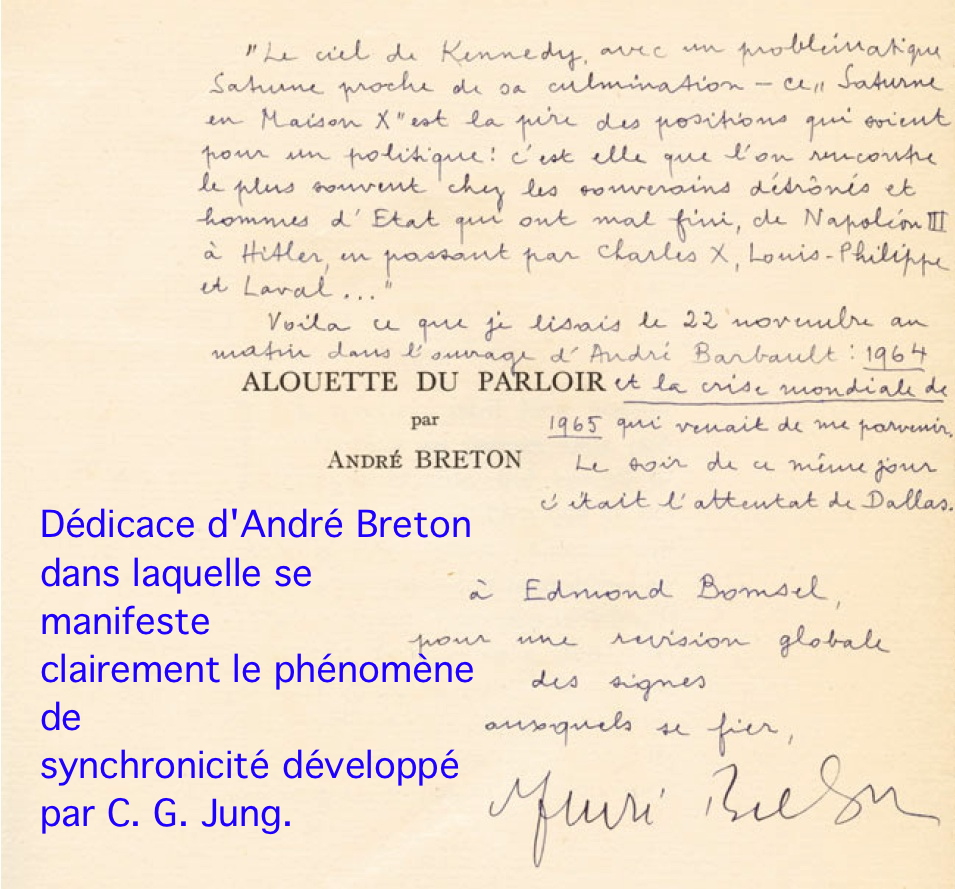 "Le ciel de Kennedy, avec un problématique
Saturne proche de sa culmination – ce „ Saturne
en Maison X" est la pire des positions qui soient
pour un politique : c'est elle que l'on rencontre
le plus souvent chez les souverains détrônés et
hommes d'Etat qui ont mal fini, de Napoléon III
à Hitler, en passant par Charles X, Louis-Philippe
et Laval ..."
Voila ce que je lisais le 22 novembre au
matin dans l'ouvrage d'André Barbault : 1964
ALOUETTE DU PARLOIR et la crise mondiale de
par 1965 qui venait de me parvenir.
ANDRÉ BRETON Le soir de ce même jour
c'était l'attentat de Dallas.
à Edmond Bomsel,
pour une revision globale
des signes
auxquels se fier,
Dédicace d'André Breton
dans laquelle se
manifeste
clairement le phénomène
de
synchronicité développé
par C. G. Jung.